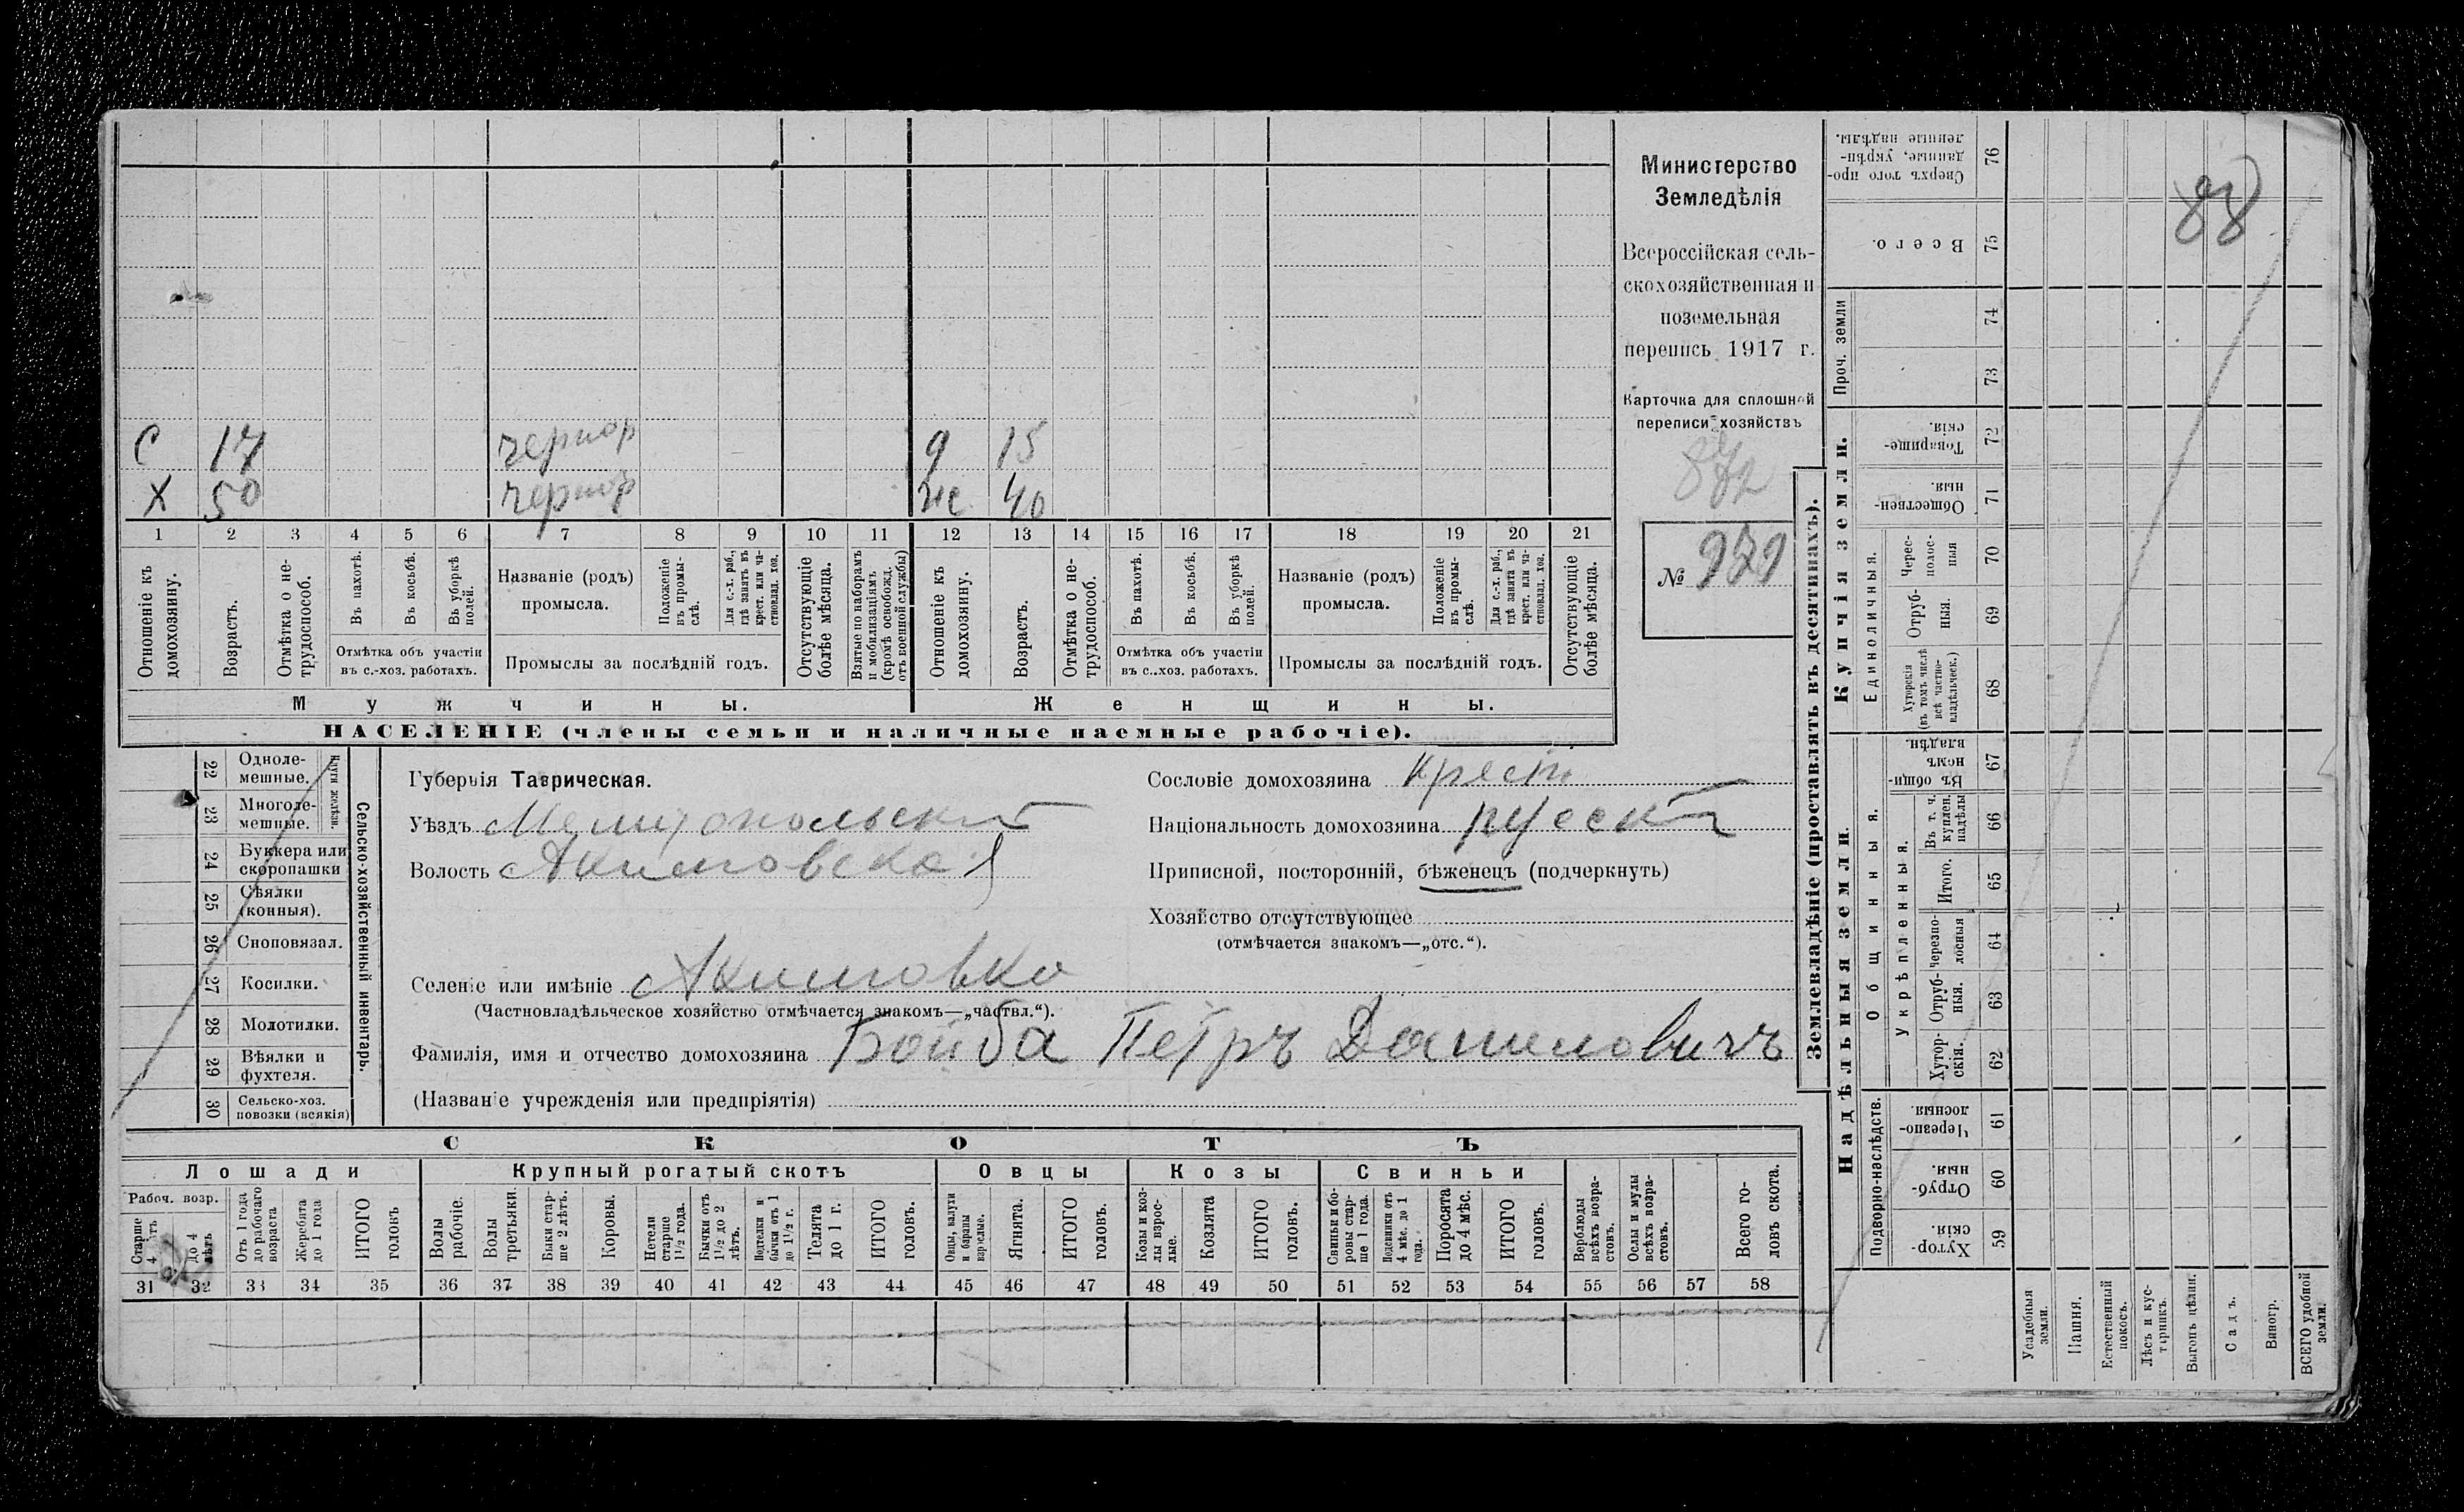 С 17 чернор д 15
Х 50 чернор ж 40
1 2 3 4 5 6 7 8 9 10 11 12 13 14 15 16 17 18 19 20 21
Отношеніе къ домохозяину.
Возрастъ.
Отмѣтка о не-
трудоспособ.
Въ пахотѣ.
Въ косьбѣ.
Въ уборкѣ
полей.
Отмѣтка объ участіи
въ с.-хоз. работахъ.
Названіе (родъ)
промысла.
Положеніе
въ промы-
слѣ.
Для с.-х. раб.,
гдѣ занятъ въ
крест. или ча-
стновлад. хоз.
Промыслы за послѣдній годъ.
Отсутствующіе
болѣе мѣсяца.
Взятые по наборамъ
и мобилизаціямъ
(кромѣ освобожд.
отъ военной службы)
Отношеніе къ
домохозяину.
Возрастъ.
Отмѣтка о не-
трудоспособ.
Въ пахотѣ.
Въ косьбѣ.
Въ уборкѣ
полей.
Отмѣтка объ участіи
въ с.-хоз. работахъ.
Названіе (родъ)
промысла.
Положеніе
въ промы-
слѣ.
Для с.-х. раб.,
гдѣ занята въ
крест. или ча-
стновлад. хоз.
Промыслы за послѣдній годъ.
Отсутствующіе
болѣе мѣсяца.
Мужчины.
Женщины.
НАСЕЛЕНІЕ (члены семьи и наличные наемные рабочіе).
Министерство
Земледѣлія
Всероссійская сель-
скохозяйственная и
поземельная
перепись 1917 г.
Карточка для сплошной
переписи хозяйствъ
№
22 Одноле-
мешные.
23 Многоле-
мешные.
Плуги желѣзн.
24 Буккера или
скоропашки
25 Сѣялки
(конныя).
26 Сноповязал.
27 Косилки.
28 Молотилки.
29 Вѣялки и
фухтеля.
30 Сельско-хоз.
повозки (всякія)
Сельско-хозяйственный инвентарь.
Губернія Таврическая.
Уѣздъ Мелитопольскій
Волость Акимовская
Селеніе или имѣніе Акимовка
(Частновладѣльческое хозяйство отмѣчается знакомъ—„частвл.“).
Фамилія, имя и отчество домохозяина Бойба Петръ Даниловичъ
(Названіе учрежденія или предпріятія)
Сословіе домохозяина крест.
Національность домохозяина русскій
Приписной, посторонній, бѣженецъ (подчеркнуть)
Хозяйство отсутствующее
(отмѣчается знакомъ—„отс.“).
СКОТЪ
Лошади
Крупный рогатый скотъ
Овцы
Козы
Свиньи
Рабоч. возр.
Старше
4 лѣтъ
до 4
лѣтъ
Отъ 1 года
до рабочаго
возраста
Жеребята
до 1 года
ИТОГО
головъ
Волы
рабочіе.
Волы
третьяки.
Быки стар-
ше 2 лѣтъ.
Коровы.
Нетели
старше
1½ года.
Бычки отъ
1½ до 2
лѣтъ.
Подтелки и
бычки отъ 1
до 1½ г.
Телята
до 1 г.
ИТОГО
головъ.
Овцы, валухи
и бараны
взрослые.
Ягнята.
ИТОГО
головъ.
Козы и коз-
лы взрос-
лые.
Козлята
ИТОГО
головъ.
Свиньи и бо-
ровы стар-
ше 1 года.
Подсвинки отъ
4 мѣс. до 1
года.
Поросята
до 4 мѣс.
ИТОГО
головъ.
Верблюды
всѣхъ возра-
стовъ.
Ослы и мулы
всѣхъ возра-
стовъ.
Всего го-
ловъ скота.
31 32 33 34 35 36 37 38 39 40 41 42 43 44 45 46 47 48 49 50 51 52 53 54 55 56 57 58
88
Землевладѣніе (проставлять въ десятинахъ).
Купчія земли.
Надѣльныя земли.
Проч. земли
Единоличныя.
Общинныя.
Укрѣпленныя.
Подворно-наслѣдств.
Сверхъ того про-
данные, укрѣп-
ленные надѣлы. 76
Всего. 75
74
73
Товарище-
скія. 72
Обществен-
ныя. 71
Черес-
полос-
ныя 70
Отруб-
ныя. 69
Хуторскія
(въ томъ числѣ
всѣ частно-
владѣльческ.) 68
Въ общи-
номъ
владѣн. 67
Въ т. ч.
куплен.
надѣлы 66
Итого. 65
Черезпо-
лосныя 64
Отруб-
ныя. 63
Хутор-
скія. 62
Черезпо-
лосныя. 61
Отруб-
ныя. 60
Хутор-
скія. 59
Усадебныя
земли.
Пашня.
Естественный
покосъ.
Лѣсъ и кус-
тарникъ.
Выгонъ цѣлин.
Садъ.
Виногр.
ВСЕГО удобной
земли.